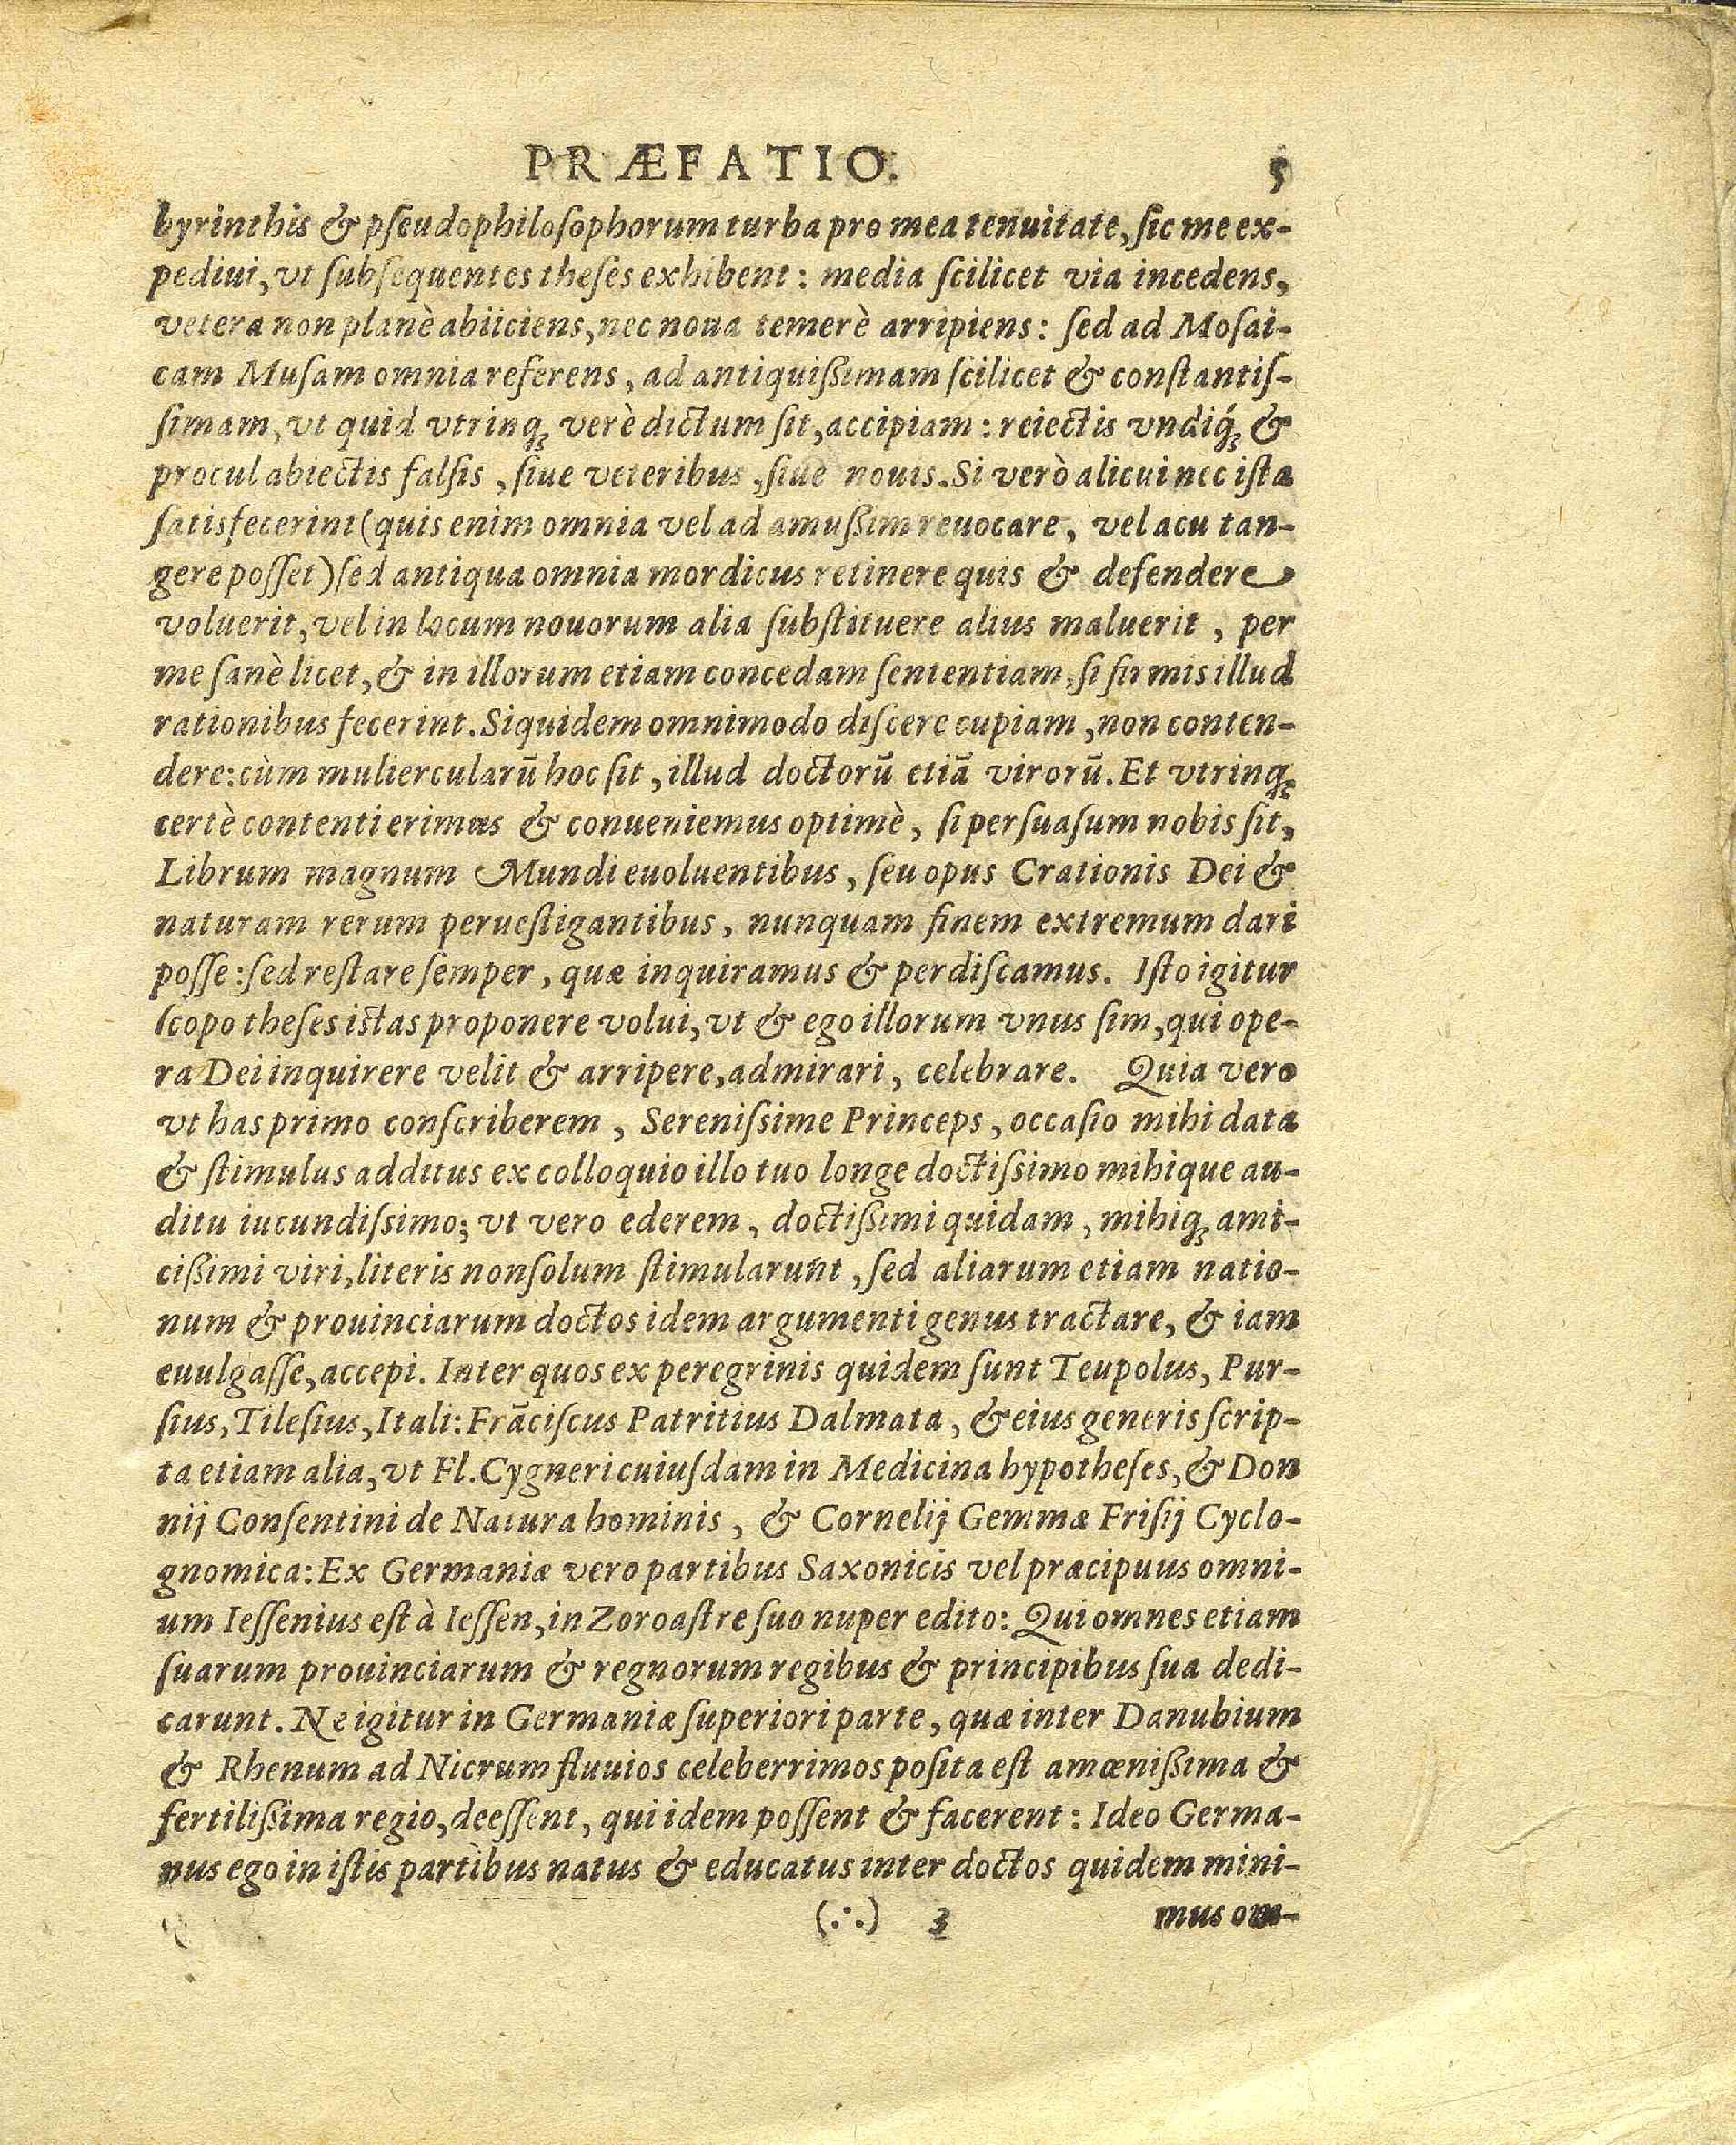 PRÆFATIO. 5
byrinthis & pſeudophiloſophorum turba pro mea tenuitate, ſic me ex-
pediui, vt ſubſequentes theſes exhibent: media ſcilicet via incedens,
vetera non planè abiiciens, nec noua temerè arripiens: ſed ad Moſai-
cam Muſam omnia referens, ad antiquißimam ſcilicet & conſtantiſ-
ſimam, vt quid vtrinq; verè dictum ſit, accipiam: reiectis vndiq́; &
procul abiectis falſis, ſiue veteribus, ſiue nouis. Si verò alicui nec iſta
ſatisfecerint (quis enim omnia vel ad amußim reuocare, vel acu tan-
gere poſſet) ſed antiqua omnia mordicus retinere quis & defendere
voluerit, vel in locum nouorum alia ſubſtituere alius maluerit, per
me ſanè licet, & in illorum etiam concedam ſententiam, ſi firmis illud
rationibus fecerint. Siquidem omnimodo diſcere cupiam, non conten-
dere: cùm muliercularū hoc ſit, illud doctorū etiā virorū. Et vtrinq;
certè contenti erimus & conueniemus optimè, ſi perſuaſum nobis ſit,
Librum magnum Mundi euoluentibus, ſeu opus Crationis Dei &
naturam rerum perueſtigantibus, nunquam finem extremum dari
poſſe: ſed reſtare ſemper, quæ inquiramus & perdiſcamus. Iſto igitur
ſcopo theſes istas proponere volui, vt & ego illorum vnus ſim, qui ope-
ra Dei inquirere velit & arripere, admirari, celebrare. Quia vero
vt has primo conſcriberem, Sereniſsime Princeps, occaſio mihi data
& ſtimulus additus ex colloquio illo tuo longe doctiſsimo mihique au-
ditu iucundiſsimo; vt vero ederem, doctißimi quidam, mihiq; ami-
cißimi viri, literis non ſolum ſtimularunt, ſed aliarum etiam natio-
num & prouinciarum doctos idem argumenti genus tractare, & iam
euulgaſſe, accepi. Inter quos ex peregrinis quidem ſunt Teupolus, Pur-
ſius, Tileſius, Itali: Frāciſcus Patritius Dalmata, & eius generis ſcrip-
ta etiam alia, vt Fl. Cygneri cuiuſdam in Medicina hypotheſes, & Don
nij Conſentini de Natura hominis, & Cornelij Gemmæ Friſij Cyclo-
gnomica: Ex Germaniæ vero partibus Saxonicis vel præcipuus omni-
um Ieſſenius eſt à Ieſſen, in Zoroaſtre ſuo nuper edito: Qui omnes etiam
ſuarum prouinciarum & regnorum regibus & principibus ſua dedi-
carunt. Ne igitur in Germaniæ ſuperiori parte, quæ inter Danubium
& Rhenum ad Nicrum fluuios celeberrimos poſita eſt amœnißima &
fertilißima regio, deeſſent, qui idem poſſent & facerent: Ideo Germa-
nus ego in iſtis partibus natus & educatus inter doctos quidem mini-
(∴) 3 mus om-